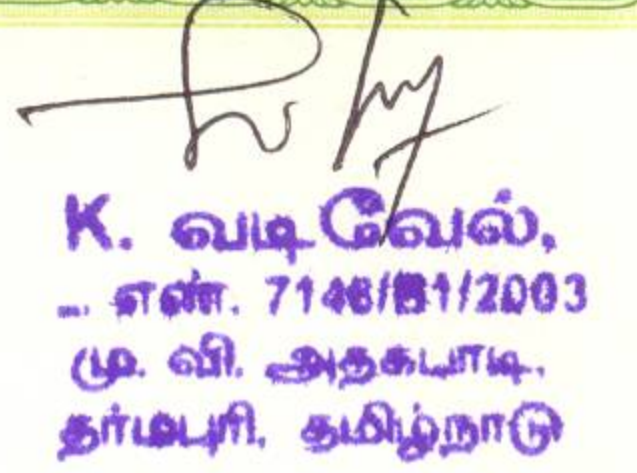 K. வடிவேல்,
எண். 7148/B1/2003
மு. வி. அதகபாடி.
தர்மபுரி, தமிழ்நாடு